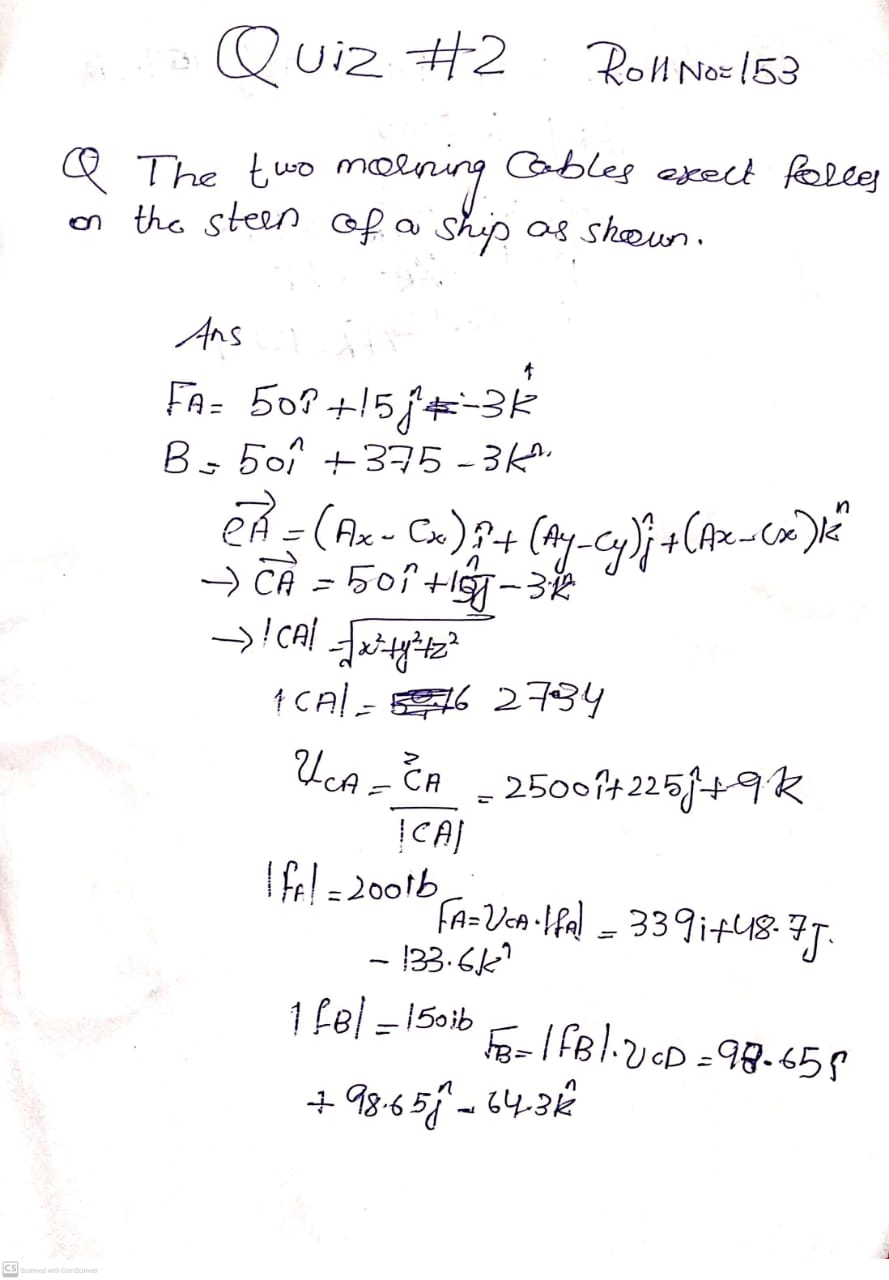 Quiz #2 Roll No=153
Q The two mooring Cables exert forces
on the stern of a ship as shown.
Ans
FA= 50î +15ĵ -3k̂
B = 50î +375 -3k̂
CA = (Ax - Cx)î + (Ay-Cy)ĵ + (Ax-Cx)k̂
→ CA = 50î +15ĵ -3k̂
→ |CA| = √x²+y²+z²
|CA| = 2734
UCA = CA = 2500î+225ĵ+9k
|CA|
|fA| = 200lb
FA=UCA.|fA| = 339i+48.7J
- 133.6k̂
|fB| = 150ib
FB= |fB|.UCD = 98.65î
+ 98.65ĵ - 64.3k̂
CS Scanned with CamScanner